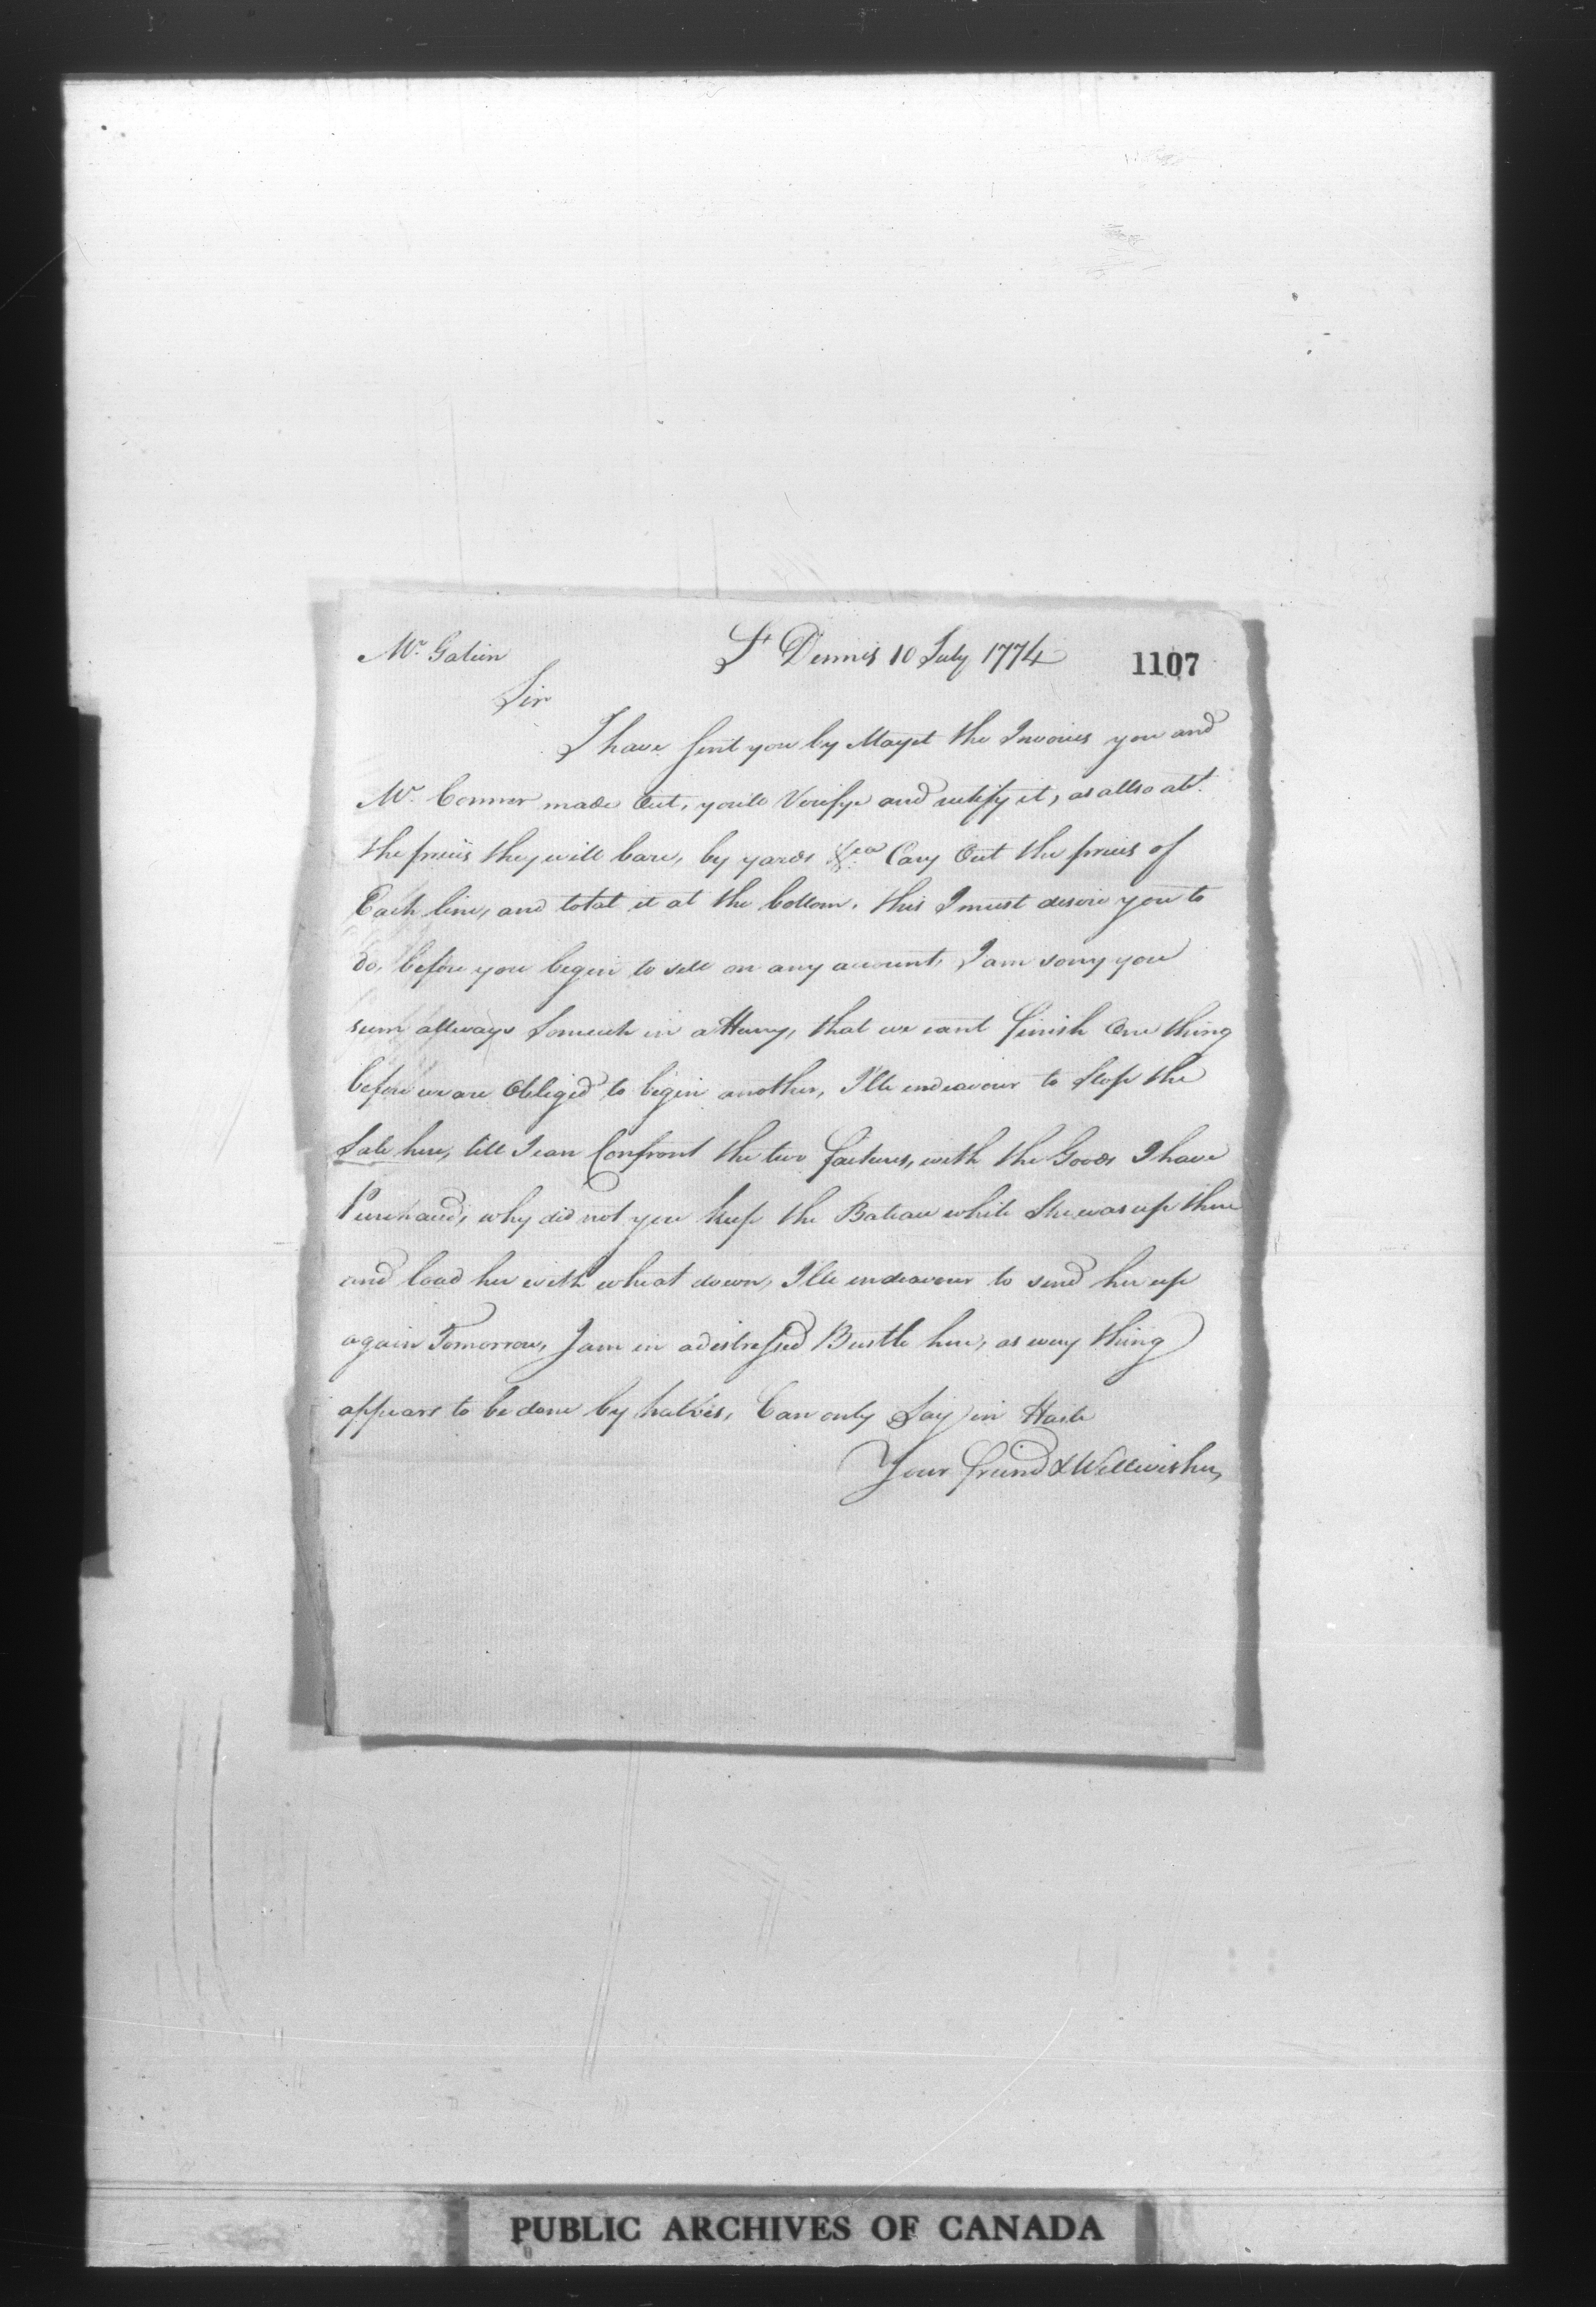 Mr. Galien
St Dennis 10 July 1774
1107
Sir
I have sent you by Mayet the Invoices you and
Mr. Connor made Out, you'll Verifye and rectify it, as allso abt.
the prices they will bare, by yards &ca Cary Out the prices of
Each line, and total it at the bottom, this I must desire you to
do, before you begin to sell on any account, I am sorry you
seem allways somuch in a Hurry, that we cant finish One thing
before we are Obliged to begin another, I'll endeavour to Stop the
Sale here, till I can Confront the two factures, with the Goods I have
Purchased, why did not you keep the Bateau while She was up there
and load her with wheat down, I'll endeavour to send her up
again Tomorrow, I am in a distressed Bustle here, as every thing
appears to be done by halves, Can only Say in Haste
Your freind & Wellwisher,
PUBLIC ARCHIVES OF CANADA